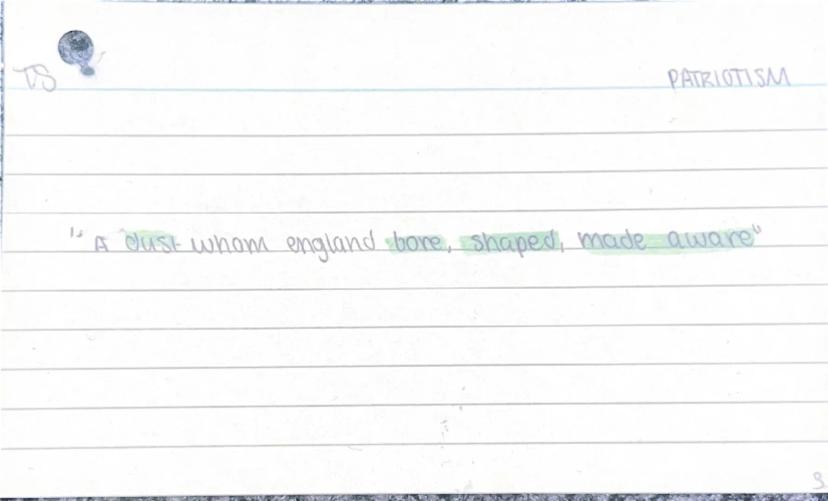 TS
PATRIOTISM
"A dust whom england bore, shaped, made aware"
3